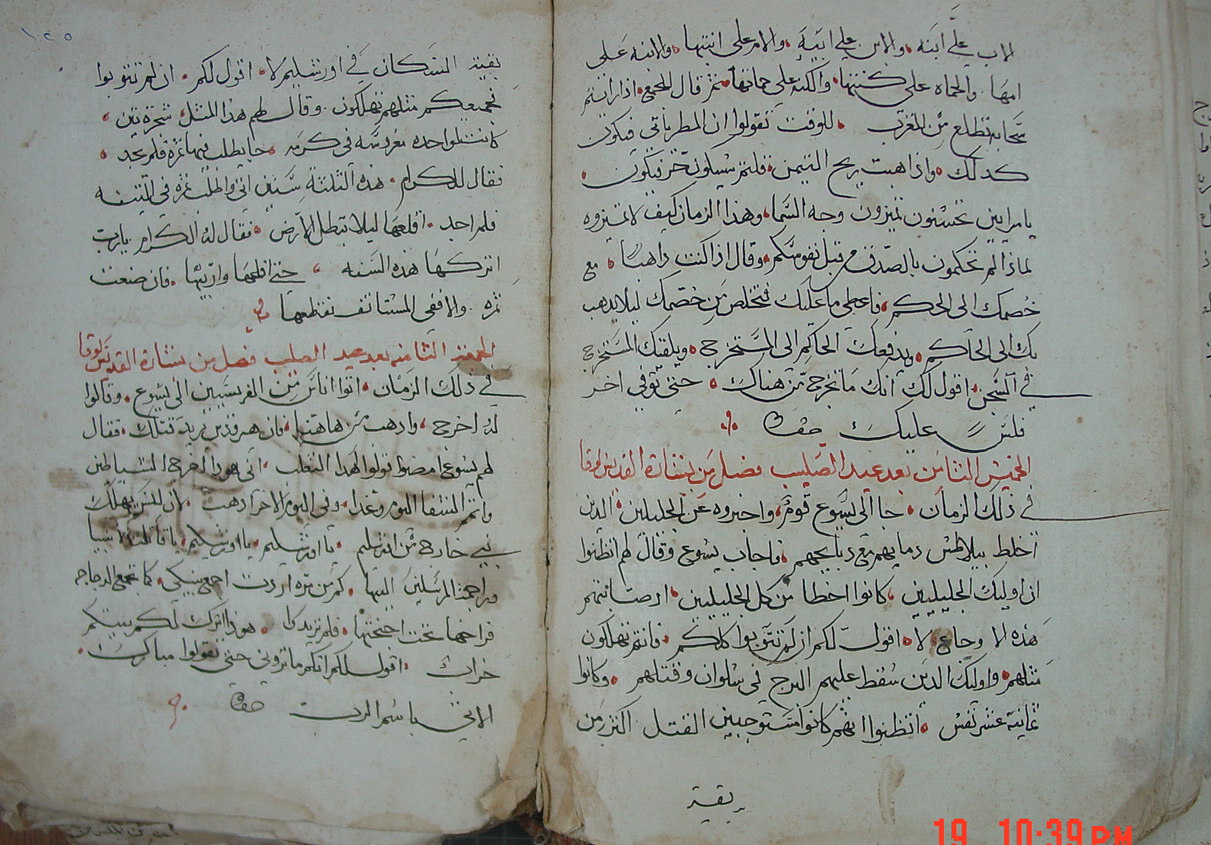 الاب على ابنه والابن على ابيه والام على ابنتها والابنه على
امها والحماه على كنتها والكنه على حماتها ثم قال للجمع اذا رايتم
سحابه تطلع من المغرب للوقت تقولوا ان المطر ياتي فيكون
كدلك واذا هبت ريح التيمن قلتم سيكون حر فيكون
يامرايين تحسنون تميزون وجه السما وهذا الزمان كيف لا تميزوه
لماذا لم تحكمون بالصدق من قبل نفوسكم وقال اذا كنت داهبا مع
خصمك الى الحاكم فاعطي ما عليك فتخلص من خصمك ليلا يدهب
بك الى الحاكم ويدفعك الحاكم الى المستخرج ويلقيك المستخرج
في السجن اقول لك انك ما تخرج من هناك حتى توفي اخر
فلس عليك حقا
الخميس الثامن بعد عيد الصليب فصل من بشارة القديس لوقا
في ذلك الزمان جا الى يسوع قوم واخبروه عن الجليلين الدين
اخلط بيلاطس دمايهم مع دبايحهم فاجاب يسوع وقال لهم اتظنوا
ان اوليك الجليليين كانوا اخطا من كل الجليليين اد صابتهم
هذه الاوجاع لا اقول لكم ان لم تتوبوا كلكم فانتم تهلكون
مثلهم واوليك الدين سقط عليهم البرج في سلوان وقتلهم وكانوا
ثمانية عشر نفس اتظنوا انهم كانوا مستوجبين القتل اكتر من
بقية
١٢٥
بقية السكان في اورشليم لا اقول لكم ان لم تتوبوا
فجميعكم مثلهم تهلكون وقال لهم هذا المثل شجرة تين
كانت لواحد مغروسه في كرمه جا يطلب فيها ثمرة فلم يجد
فقال للكرام هذه الثلثه سنين اتي واطلب ثمرة في التينه
فلم اجد اقلعها ليلا تبطل الارض فقال له الكرام يارب
اتركها هذه السنه حتى افلحها وازبلها فان صنعت
ثمره والا ففي المستانف تقطعها
الجمعة الثامنه بعد عيد الصليب فصل من بشارة القديس لوقا
في ذلك الزمان اتوا اناس من الفريسيين الى يسوع وقالوا
له اخرج وادهب من هاهنا فان هيرودس يريد قتلك فقال
لهم يسوع امضوا قولوا لهدا الثعلب اني هودا اخرج الشياطين
واتمم الشفا اليوم وغدا وفي اليوم الاخر ادهب لان ليس يهلك
نبي خارج من اورشليم يا اورشليم يا اورشليم يا قاتلة الانبيا
وراجمة المرسلين اليها كم من مره اردت اجمع بنيكي كما تجمع الدجاجه
فراخها تحت اجنحتها فلم تريدوا هودا اترك لكم بيتكم
خراب اقول لكم انكم ما تروني حتى تقولوا مبارك
الاتي باسم الرب حقا
19 10:39 PM